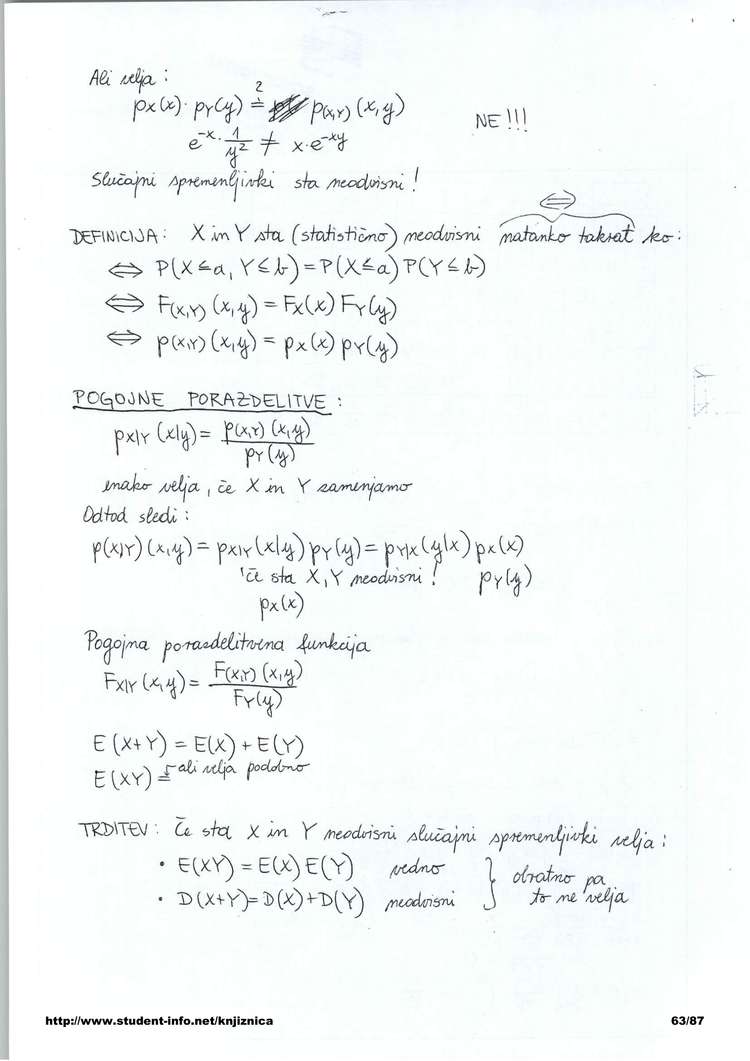 Ali velja :
pX(x) · pY(y) ≟ p(X,Y) (x,y)
NE !!!
e^-x · 1/y² ≠ x·e^-xy
Slučajni spremenljivki sta neodvisni !
⇔
DEFINICIJA : X in Y sta (statistično) neodvisni natanko takrat ko :
⇔ P(X ≤ a, Y ≤ b) = P(X ≤ a) P(Y ≤ b)
⇔ F(X,Y) (x,y) = FX(x) FY(y)
⇔ p(X,Y) (x,y) = pX(x) pY(y)
POGOJNE PORAZDELITVE :
pX|Y (x|y) = p(X,Y) (x,y) / pY(y)
enako velja, če X in Y zamenjamo
Odtod sledi :
p(X,Y) (x,y) = pX|Y (x|y) pY(y) = pY|X (y|x) pX(x)
če sta X, Y neodvisni ! pY(y)
pX(x)
Pogojna porazdelitvena funkcija
FX|Y (x,y) = F(X,Y) (x,y) / FY(y)
E(X+Y) = E(X) + E(Y)
E(XY) = ali velja podobno
TRDITEV : Če sta X in Y neodvisni slučajni spremenljivki velja :
• E(XY) = E(X) E(Y) vedno } obratno pa
• D(X+Y) = D(X) + D(Y) neodvisni } to ne velja
http://www.student-info.net/knjiznica 63/87